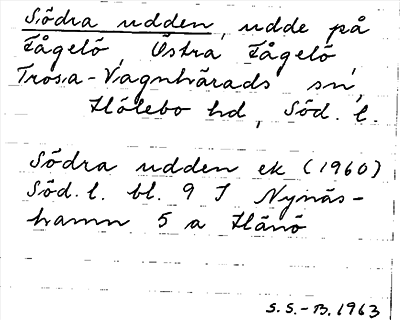 Södra udden, udde på
Fågelö, Östra Fågelö,
Trosa-Vagnhärads sn,
Hölebo hd, Söd. l.
Södra udden ek (1960)
Söd. l. bl. 9 I Nynäs-
hamn 5 a Hånö
S.S.-B. 1963